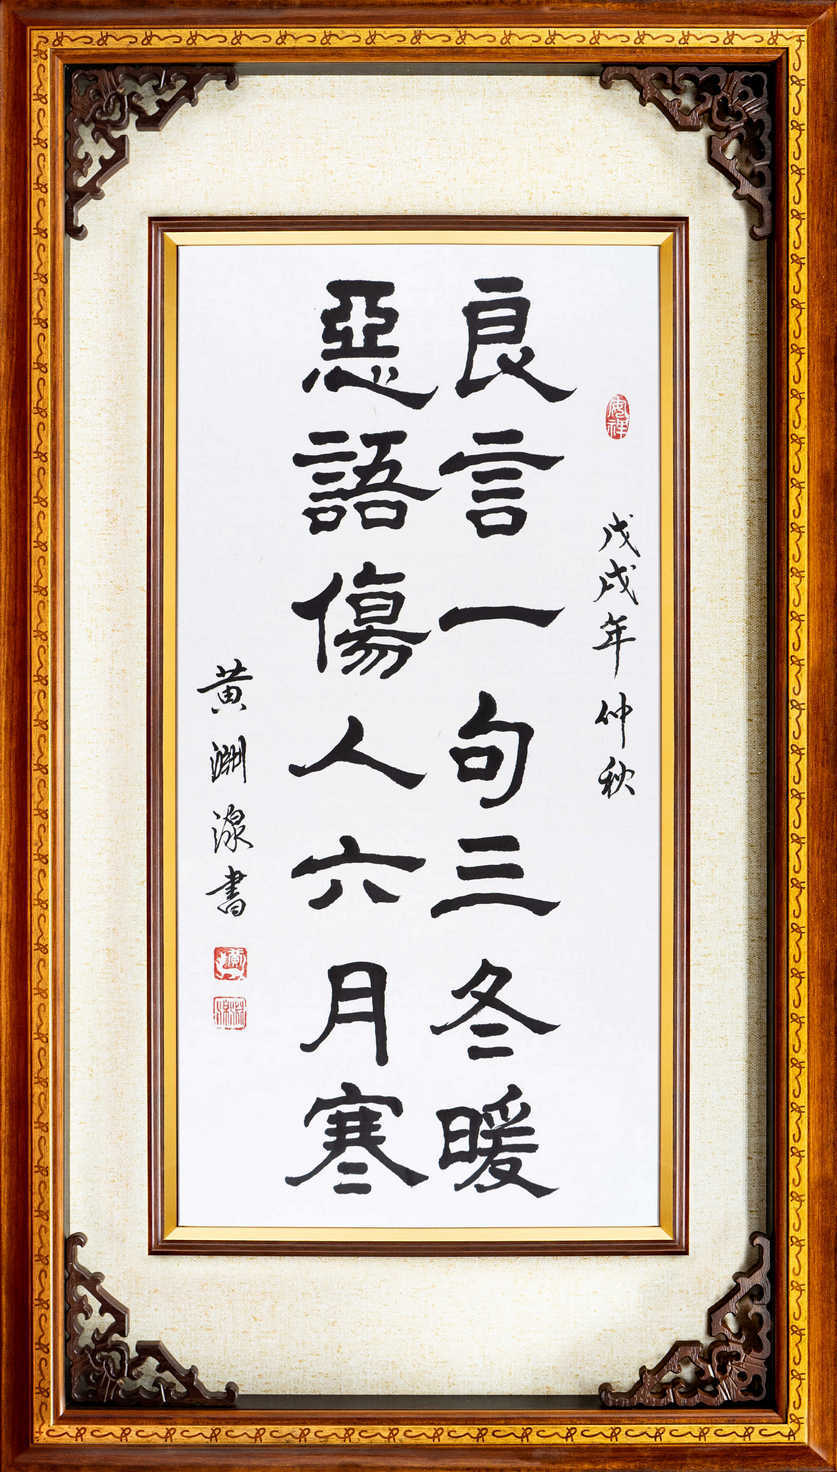 安祥
戊戌年仲秋
良言一句三冬暖
惡語傷人六月寒
黄渊源書